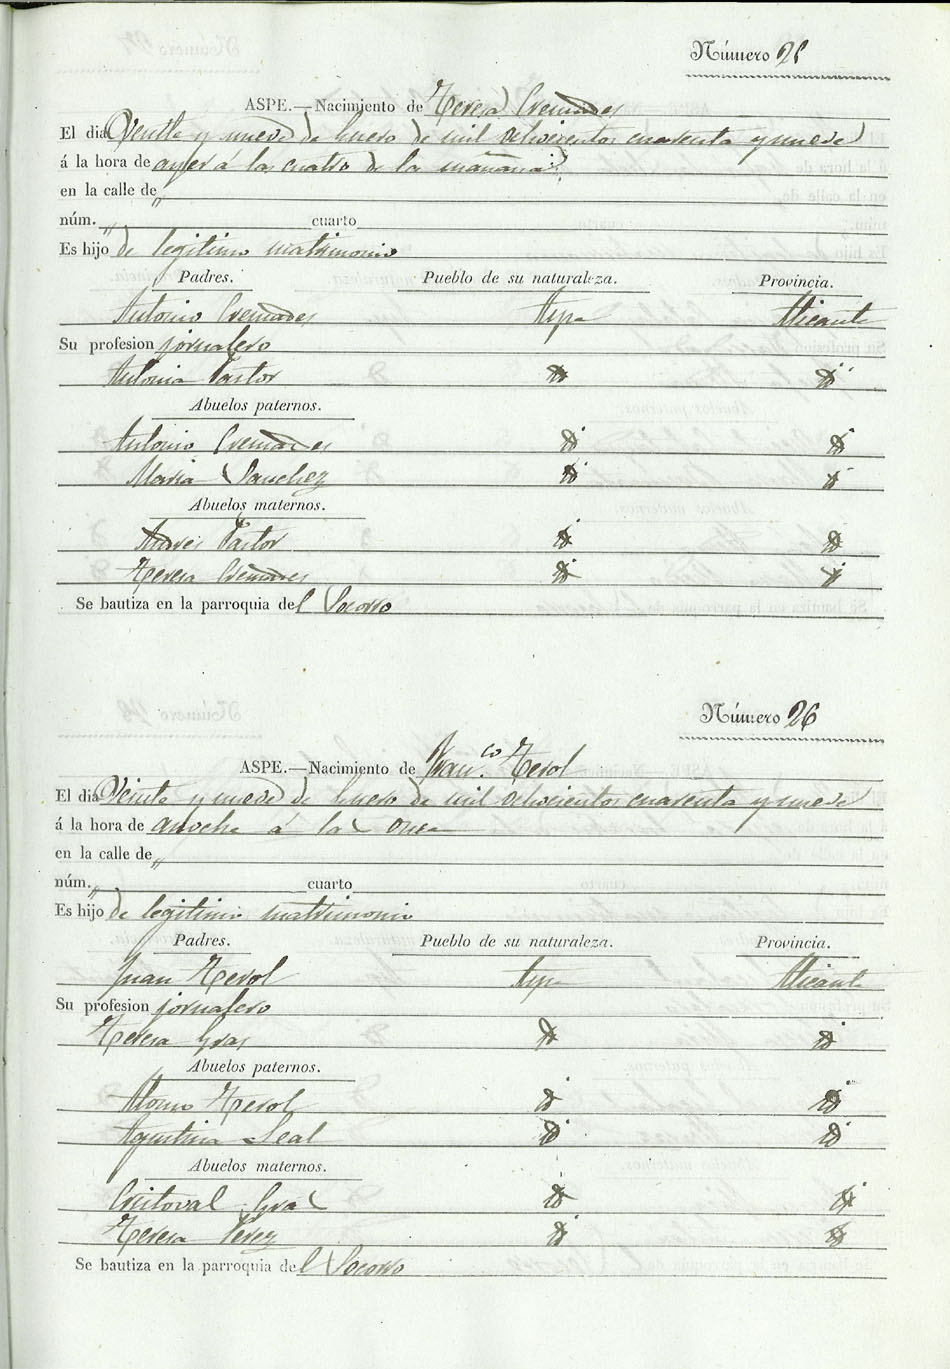 Número 25
ASPE.—Nacimiento de Teresa Cremades
El dia Veinte y nueve de Enero de mil ochocientos cuarenta y nueve
á la hora de ayer á las cuatro de la mañana
en la calle de „
núm. „ cuarto
Es hijo de legitimo matrimonio
Padres. Pueblo de su naturaleza. Provincia.
Antonio Cremades Aspe Alicante
Su profesion jornalero
Antonia Pastor id id
Abuelos paternos.
Antonio Cremades id id
Maria Sanchez id id
Abuelos maternos.
Andres Pastor id id
Teresa Cremades id id
Se bautiza en la parroquia del Socorro
Número 26
ASPE.—Nacimiento de Fran.co Terol
El dia Veinte y nueve de Enero de mil ochocientos cuarenta y nueve
á la hora de anoche á las once
en la calle de „
núm. „ cuarto
Es hijo de legitimo matrimonio
Padres. Pueblo de su naturaleza. Provincia.
Juan Terol Aspe Alicante
Su profesion jornalero
Teresa Gras id id
Abuelos paternos.
Alonso Terol id id
Agustina Leal id id
Abuelos maternos.
Cristoval Gras id id
Teresa Perez id id
Se bautiza en la parroquia del Socorro